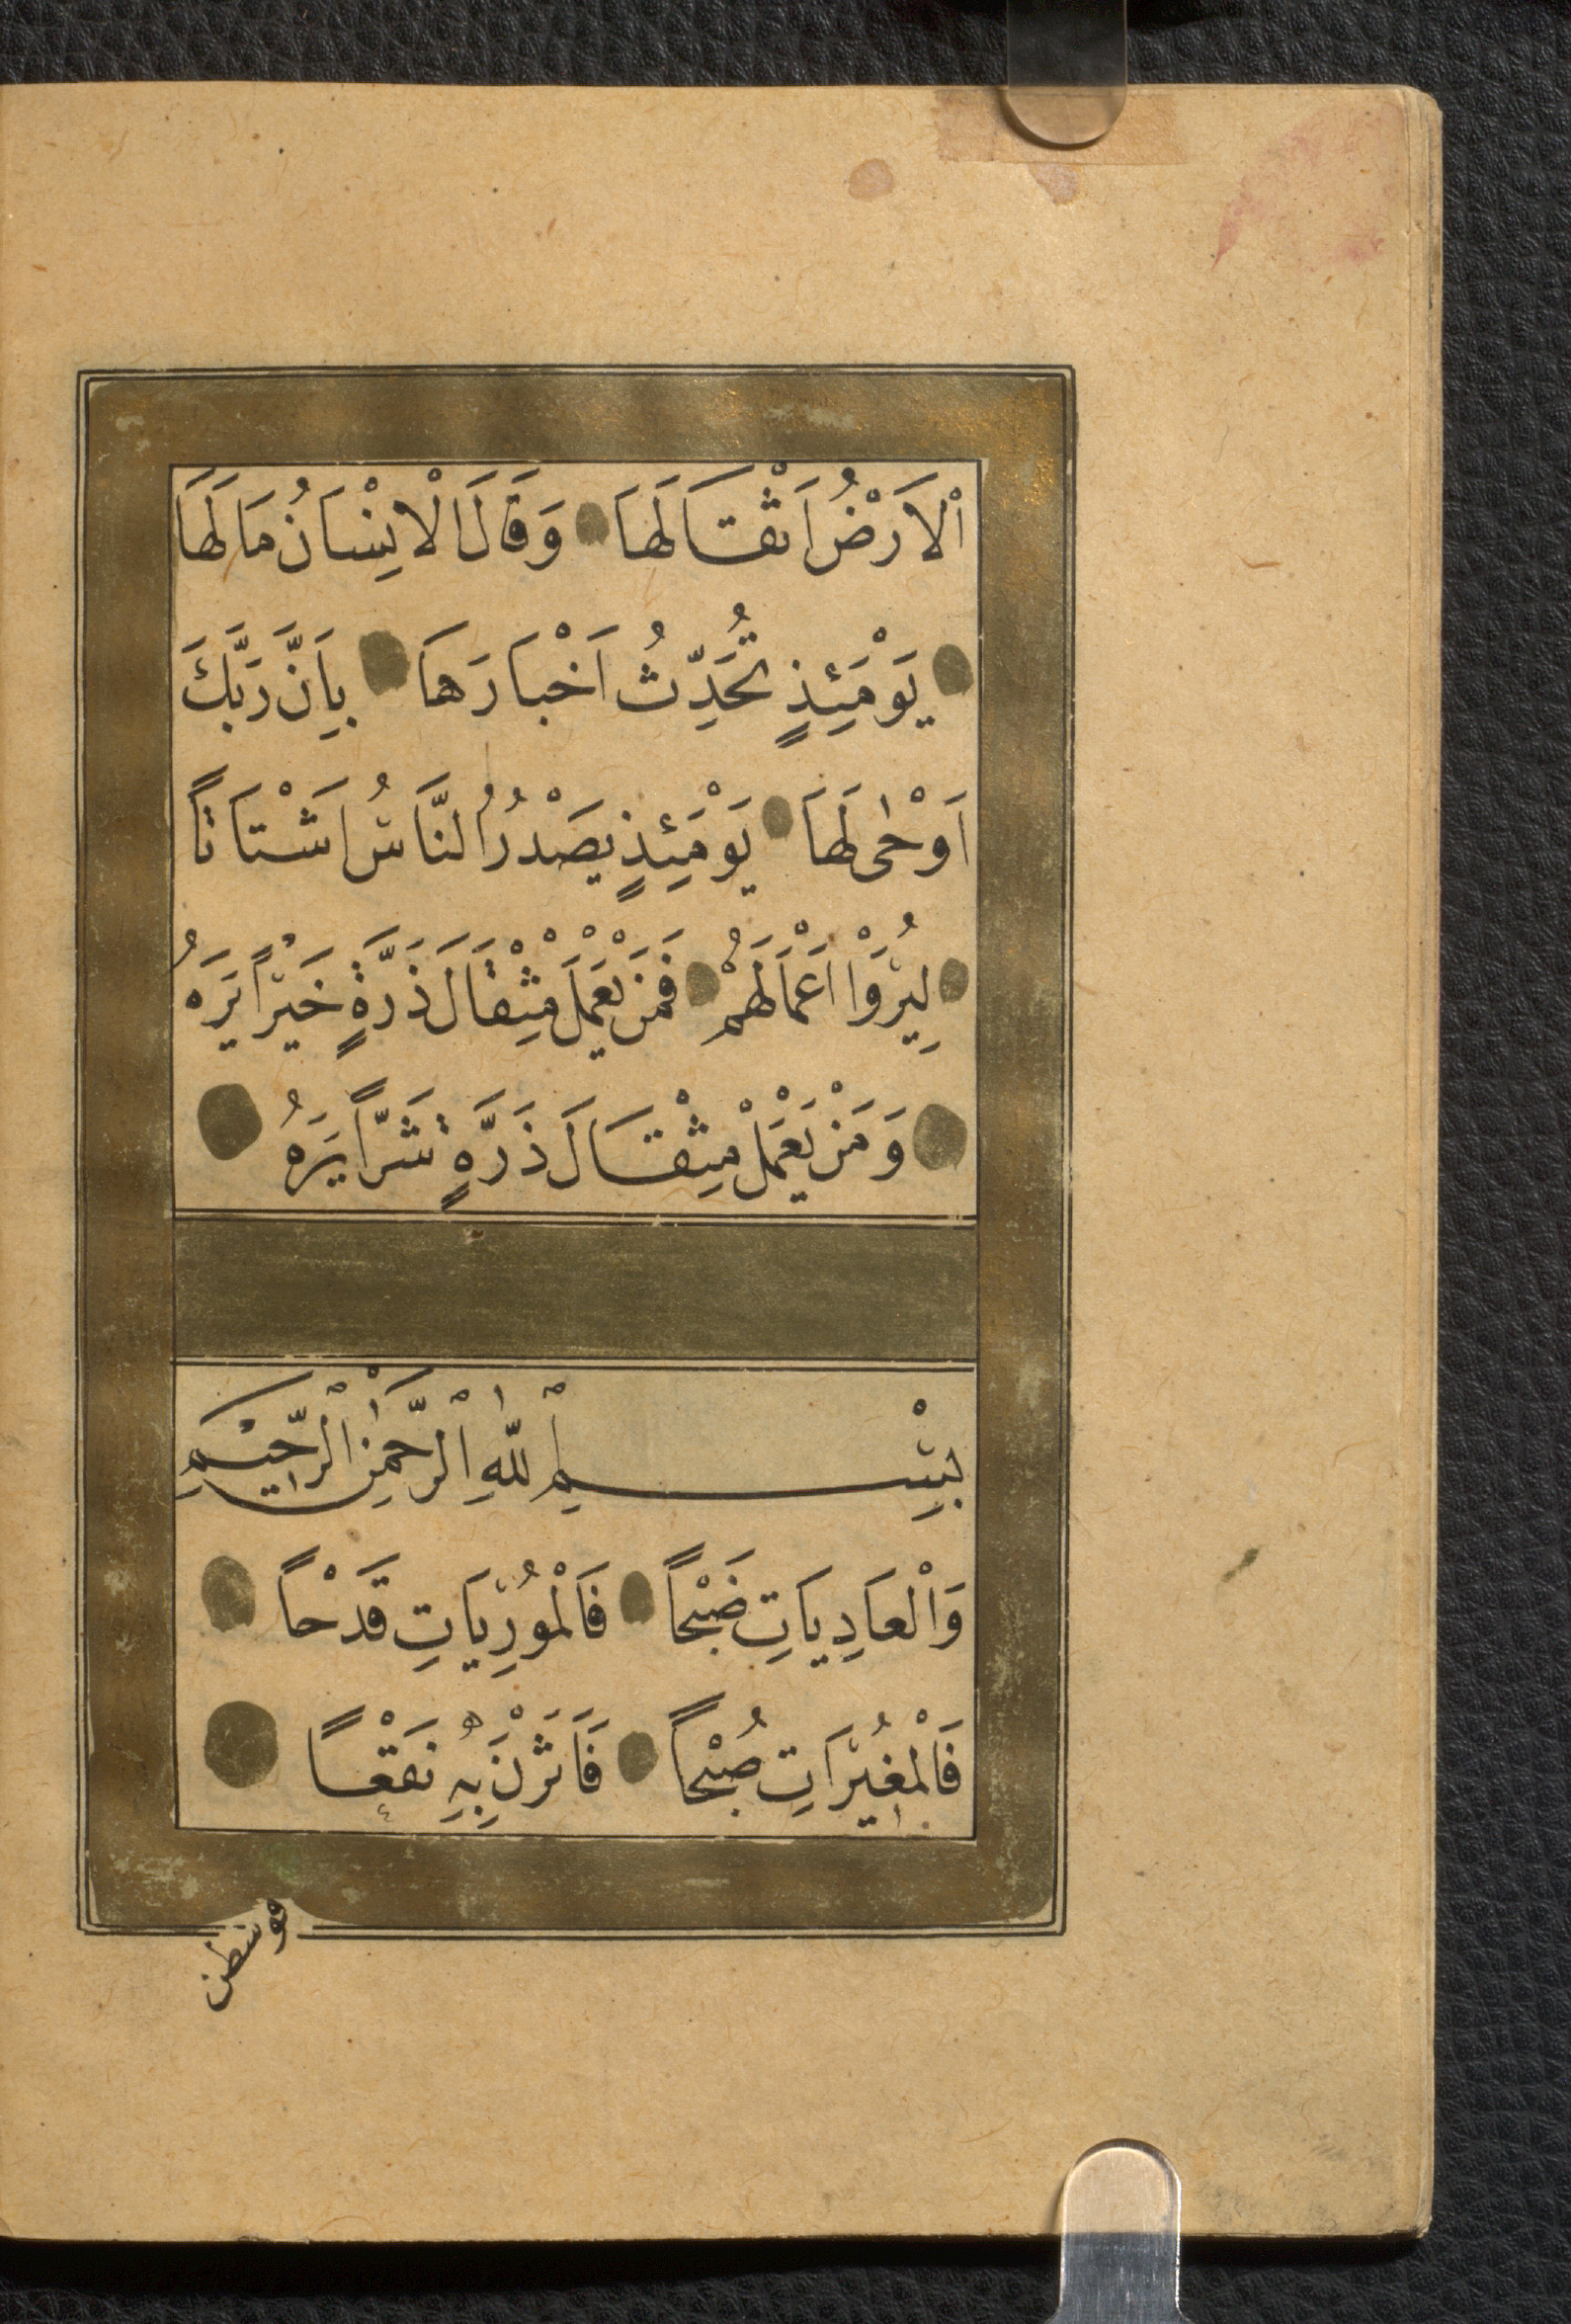 اْلاَرْضُ اَثْقَالَهَا وَقَالَ الْاِنْسَانُ مَالَهَا
يَوْمَئِذٍ تُحَدِّثُ اَخْبَارَهَا بِاَنَّ رَبَّكَ
اَوْحٰى لَهَا يَوْمَئِذٍ يَصْدُرُ النَّاسُ اَشْتَاتًا
لِيُرَوْا اَعْمَالَهُمْ فَمَنْ يَعْمَلْ مِثْقَالَ ذَرَّةٍ خَيْرًا يَرَهُ
وَمَنْ يَعْمَلْ مِثْقَالَ ذَرَّةٍ شَرًّا يَرَهُ
بِسْمِ اللّٰهِ الْرَّحْمٰنِ الْرَّحِيْمِ
وَاْلعَادِيَاتِ ضَبْحًا فَالْمُوْرِيَاتِ قَدْحًا
فَالْمُغِيْرَاتِ صُبْحًا فَاَثَرْنَ بِهِ نَقْعًا
فوسطن